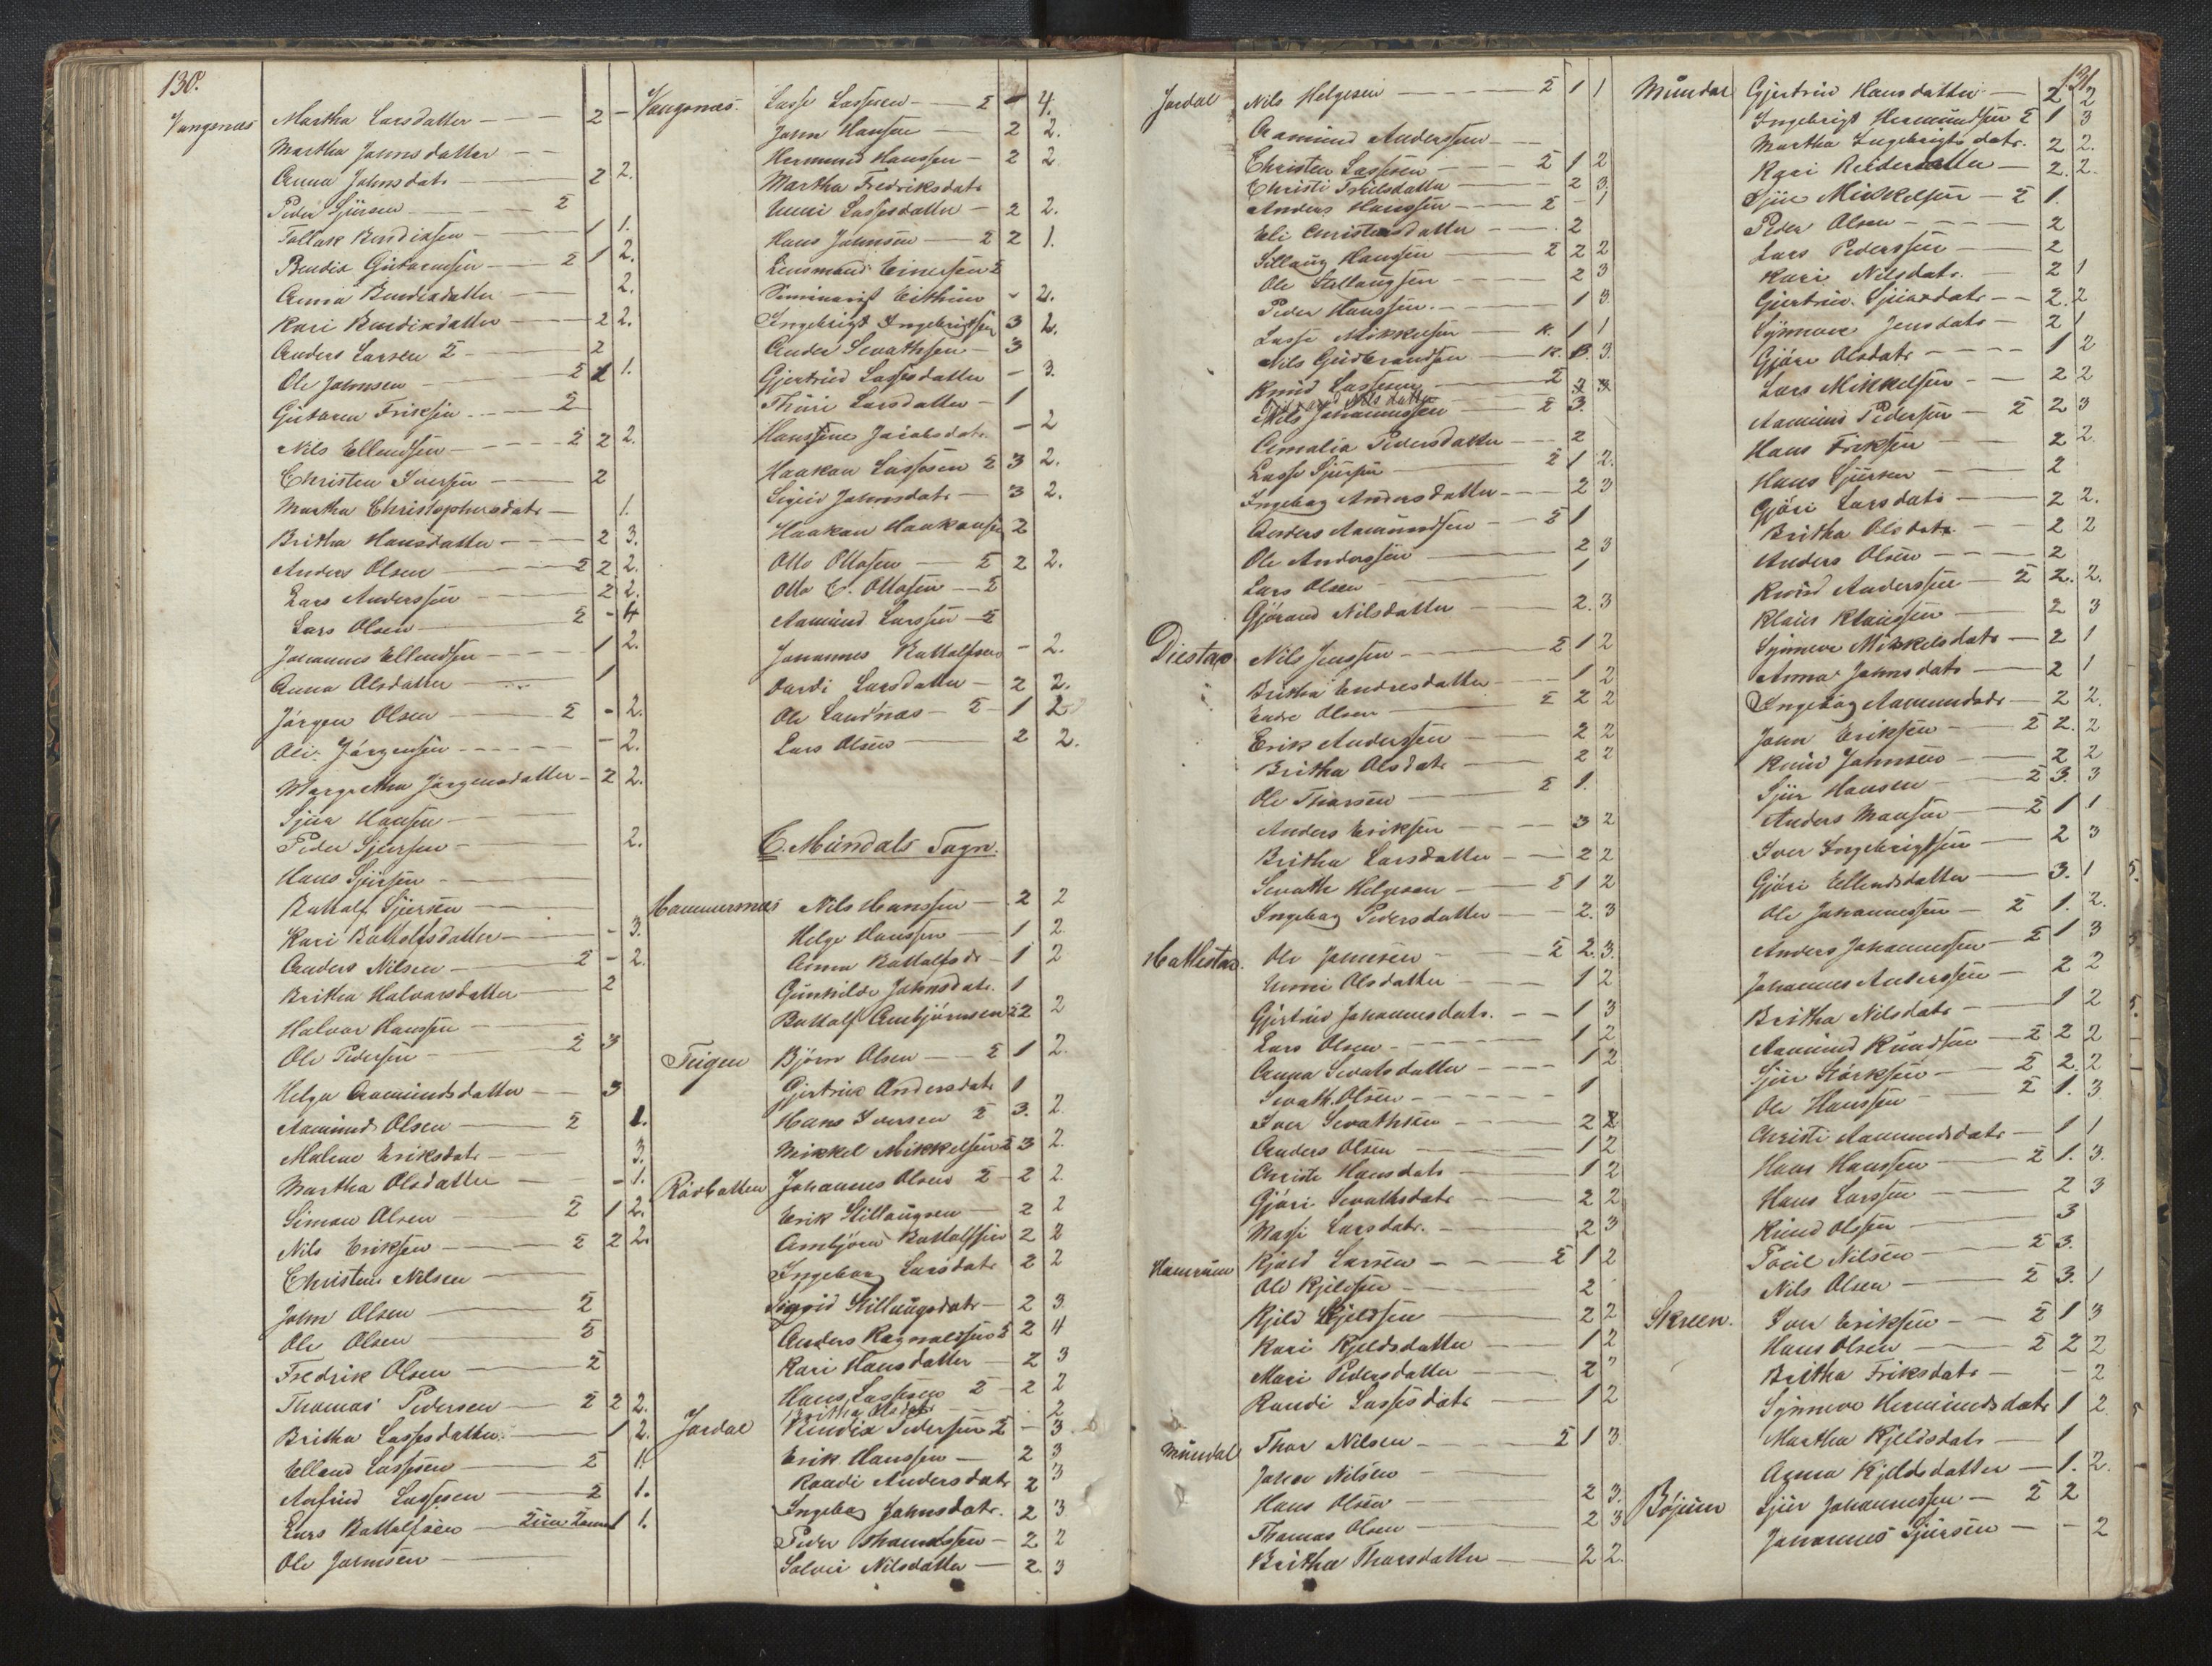 130.
Vangsnæs Martha Larsdatter 2 -
Martha Johnsdatter
Anna Johnsdatr 2 2.
Peder Sjursen 2
Tollak Bendiksen 1 1.
Bendix Guttormsen 2 1 2.
Anna Bendixdatter 2.
Kari Bendixdatter 2 2.
Anders Larsen 2 2
Ole Johnsen 2 1 1.
Guttorm Eriksen 2
Nils Ellendsen 2 2 2.
Christen Iversen 2
Martha Christophersdatr 1.
Britha Hansdatter 2 3.
Anders Olsen 2 2 2.
Lars Anderssen 2 2.
Lars Olsen 2 - 4
Johannes Ellendsen 1 2.
Anna Olsdatter 1
Jörgen Olsen 2 - 2.
Ole Jörgensen - 2.
Margretha Jörgensdatter 2 2.
Sjur Hansen
Peder Sjursen 2.
Hans Sjursen
Battolf Sjursen
Kari Battolfsdatter - 3.
Anders Nilsen 2 - 2.
Britha Halvorsdatter 2
Halvor Hanssen
Ole Pedersen 2 3
Helga Aamundsdatter 3
Aamund Olsen 2 1.
Malene Eriksdatr 3.
Martha Olsdatter - 1.
Simon Olsen 2 1 2.
Nils Eriksen 2 2 2.
Christen Nilsen
John Olsen 2
Ole Olsen 2
Fredrik Olsen 2
Thomas Pedersen 2 2 2.
Britha Lassesdatter 1 2.
Ellend Lassesen 2 1.
Anfind Lassesen 2 1.
Lars Battolfsen 1 1.
Ole Johnsen
Vangsnæs Lasse Lassesen 2 - 4.
John Hansen 2 2.
Hermund Hanssen 2 2
Martha Fredriksdatr
Unni Lassesdatter 2 2.
Hans Johnsen 2 2 1.
Lensmand Einersen 2
Seminarist - 2.
Ingebrigt Ingebrigtsen 3 2.
Anders Sevathsen 3
Gjertrud Lassesdatter - 3.
Thuri Larsdatter 1
Hanssine Jacobsdatr - 2
Haakon Lassesen 2 3 2.
Sigrid Johnsdatr 3 2.
Haakon Haakonsen 2
Otto Ottosen 2 2 2.
Otto C. Ottosen 2
Aamund Larssen 2
Johannes Battolfsen - 2.
Larsdatter 2 2.
Ole Landnæs 2 1 2
Lars Olsen 2 2.
C. Mundals Sogn.
Hammersnæs Nils Hanssen 2 2
Helge Hanssen 1 2.
Anna Battolfsdr 1 2
Gunhilde Johnsdatr. 1
Battolf Arnbjörnsen 2 2 2
Teigen Björn Olsen 2 1 2.
Gjertrud Andersdatr 1
Hans Iversen 2 3. 2.
Mikkel Mikkelsen 2 3 2.
Rörbotten Johannes Olsen 2 2 2.
Erik Stillaugsen 2 2
Arnbjörn Battolfsen 2 2
Ingeborg Larsdatr 2 2
Sigrid Stillaugsdatr 2 3
Anders Ragnvaldsen 2 2 4
Kari Hansdatter 2 3
Hans Lassesen 2 2 2
Britha Olsdatr 2
Jordal Bendix Pedersen 2 - 3
Erik Hanssen 2 3
Randi Andersdatr 2 3
Ingebor Johnsdatr. 2 3
Peder 2 2
Solvei Nilsdatter 2. 3
131.
Jordal Nils Helgesen 2 1 1
Aamund Anderssen
Christen Lassesen 2 1 2
Christi Troelsdatter 2 3.
Anders Hanssen 2 - 1
Eli Christensdatter 2
Stillaug Hansen 2 2 2
Ole Stillaugsen 2 3
Peder Hanssen 1 3
Lasse Mikkelsen K. 1 1
Nils Gudbrandsen K. 3. 3.
Knud Lassesen 2 2 3
Nilsdatter
Nils Johannessen 2 3.
Amalia Pedersdatter 2
Lasse Sjursen 2 1 2.
Ingebor Andersdatter 2 3
Anders Aamundsen 2 1
Ole Anderssen 2 3
Lars Olsen 1
Gjörand Nilsdatter 2. 3
Distad Nils Jenssen 2 1 2
Britha Endresdatter 1 2
Endre Olsen 2 2 2
Erik Anderssen 2 2
Britha Olsdatr 2 2
Ole Thorsen 2 1.
Anders Eriksen 3 2
Britha Larsdatter 2 2
Sevath Helgesen 2 1 2
Ingebor Pedersdatter 2. 3
Hattestad. Ole Jonsen 2 2. 3.
Unni Olsdatter 1 2
Gjertrud Johannesdatr. 1 3
Lars Olsen 1 2
Anna Sevatsdatter 1 2
Sevath. Olsen 1
Iver Sevathsen 2 2
Anders Olsen 1 2
Christi Hansdatr 1 2
Gjöri Sevathsdatr 2 2
Massi Larsdatr. 2 3
Hamrum Kjeld Larsen 2 1 2
Ole Kjeldsen 2
Kjeld Kjeldsen 2 2
Kari Kjeldsdatter 1 2
Mari Pedersdatter 2
Randi Lassesdatr 1 2
Mundal Thor Nilsen 2 1 3
Johan Nilsen
Hans Olsen 2 3.
Thomas Olsen 2 3
Britha Thorsdatter 2 2.
Mundal Gjertrud Hansdatter 2 2
Ingebrigt Hermundsen 2 1 3
Martha Ingebrigtsdatr. 2 2.
Kari Reidersdatter 2. 2.
Sjur Mikkelsen 2 1.
Peder Olsen 2
Lars Pederssen 2
Kari Nilsdatr. 2 1
Gjertrud Sjursdatr 2. 2
Synneve Jensdatr 2 1
Gjöri Olsdatr 1 2
Lars Mikkelsen 2 2
Aamund Pedersen 2 2 3
Hans Eriksen 2 2.
Hans Sjursen 2
Gjöri Larsdatr 2 2.
Britha Olsdatr. 2 2
Anders Olsen 2
Knud Anderssen 2 2. 2.
Klaus Klaussen 2 3
Synneve Mikkelsdatr 2 1
Anna Johnsdatr 2 1
Ingebor Aamundsdr 2 2.
John Eriksen 2 2. 2
Knud Johnsen 2 2
Sjur Hansen 2 3. 3
Anders Monsen 2 1 1
Iver Ingebrigtsen 2 3
Gjöri Ellendsdatter 3. 1
Ole Johannessen 2 1. 2.
Anders Johannessen 2 1 3
Johannes Anderssen 2 2
Britha Nilsdatr 1 2
Aamund Knudsen 2 2 2
Sjur Störksen 2 2. 2
Ole Hanssen 2 1. 3.
Christi Aamundsdatr 1 1
Hans Hanssen 2 1. 3.
Hans Larssen 2 3
Knud Olssen 3
Poul Nilsen 2 3.
Nils Olsen 2 3. 1
Skreen. Iver Eriksen 2 1 3
Hans Olsen 2 2 2
Britha Eriksdatr - 2
Synneve Hermundsdatr 1 2.
Martha Kjeldsdatr 1
Anna Kjeldsdatter 1. 2.
Böjum Sjur Johannessen 2 2
Johannes Sjursen - 2